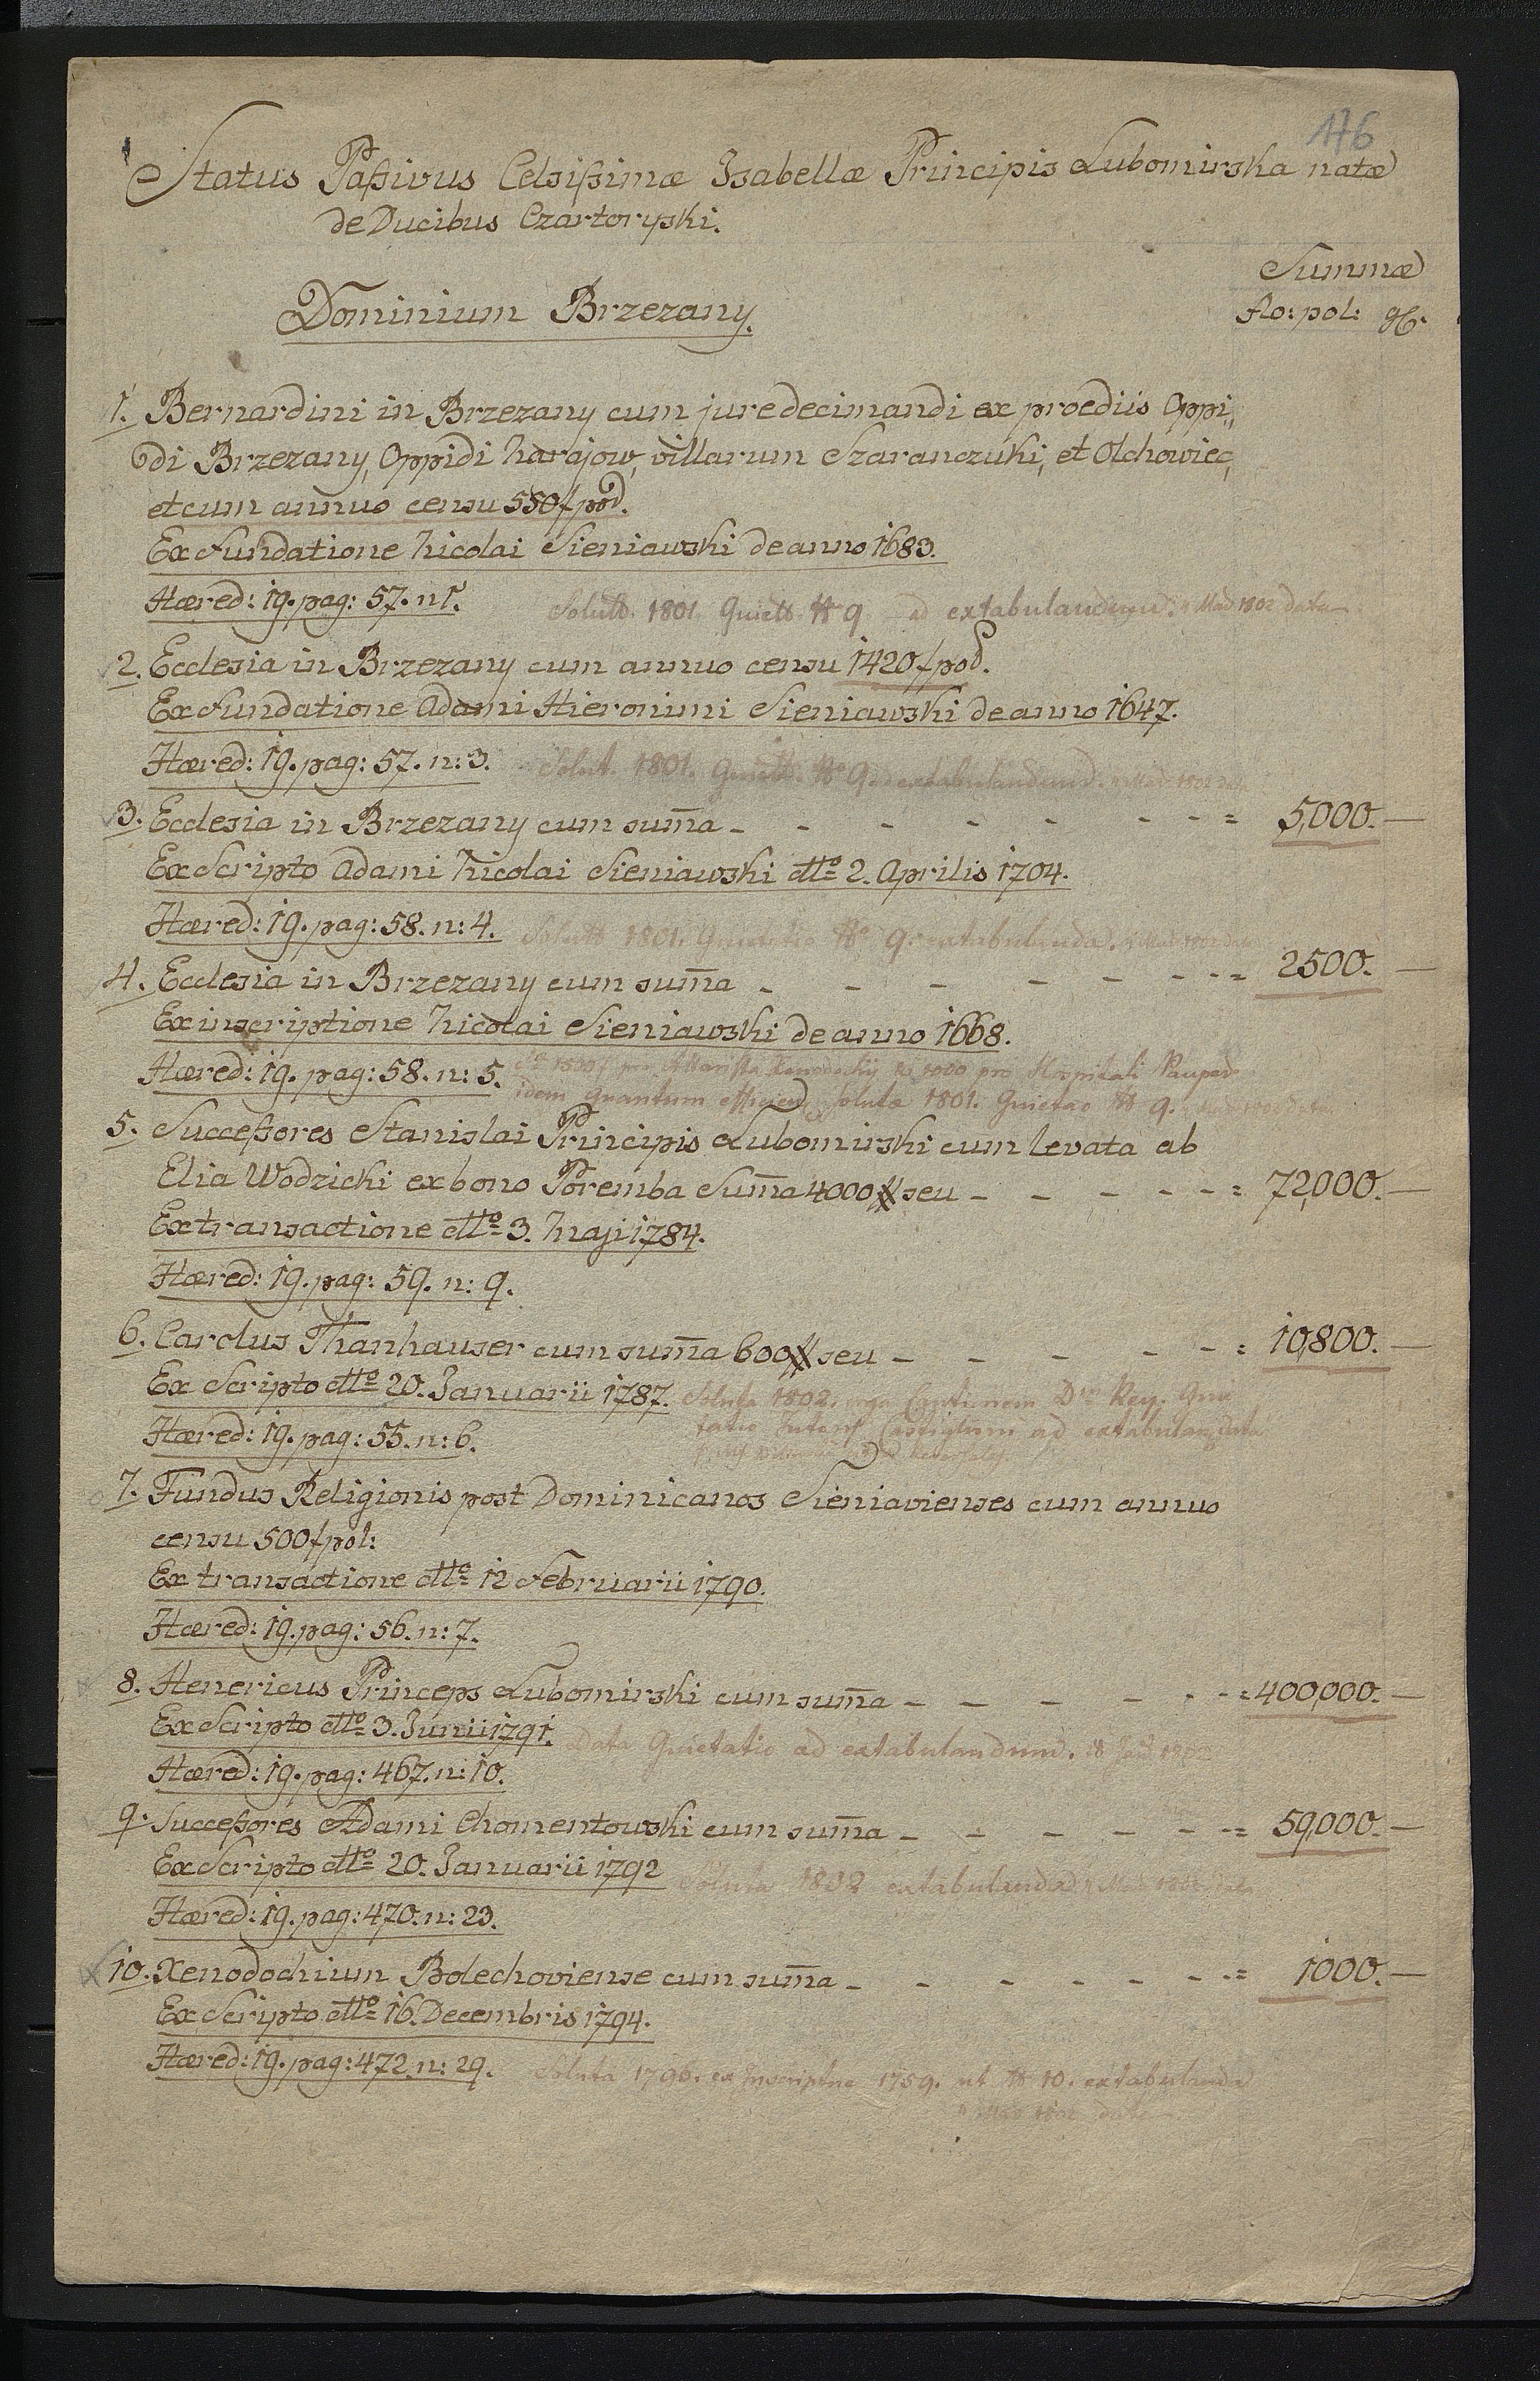 176
Status Paßivus Celsißimæ Isabellæ Principis Lubomirska natæ
de Ducibus Czartoryski.
Summæ
flo: pol: gr.
Dominium Brzezany.
1. Bernardini in Brzezany cum jure decimandi ex prœdiis Oppi„
di Brzezany, Oppidi Narajow, villarum Szaranczuki, et Olchowiec,
et cum annuo censu 550 f pol.
Ex Fundatione Nicolai Sieniawski de anno 1683.
Hæred: 19. pag: 57. n 1.
Solutt. 1801. Quiett. No 9 ad extabulandum. Maii 1802 data
2. Ecclesia in Brzezany cum annuo censu 1420 f pol.
Ex Fundatione Adami Hieronimi Sieniawski de anno 1647.
Hæred: 19. pag: 57. n: 3.
Solut. 1801. Quiett. No 9. extabulandum. 1802 data
3. Ecclesia in Brzezany cum sum̄a - - - - - - - = 5,000. —
Ex Scripto Adami Nicolai Sieniawski dtto 2. Aprilis 1704.
Hæred: 19. pag: 58. n: 4.
Solutt 1801. No 9. extabulanda. 1802 data
4. Ecclesia in Brzezany cum sum̄a - - - - - - - = 2500. —
Ex inscriptione Nicolai Sieniawski de anno 1668.
Hæred: 19. pag: 58. n: 5.
1500 f pro 1000 pro Hospitali Pauper
idem quantum efficien Soluta 1801. Quietae No 9.
5. Succeßores Stanislai Principis Lubomirski cum levata ab
Elia Wodzicki ex bono Poremba Sum̄a 4000 # seu - - - - - = 72,000. —
Ex transactione dtto 3. Maji 1784.
Hæred: 19. pag: 59. n: 9.
6. Carolus Thanhauser cum sum̄a 600 # seu - - - - - = 10,800. —
Ex Scripto dtto 20. Januarii 1787.
Soluta 1802. erga Dni Rey. Quie
tatio ad extabulan data
Hæred: 19. pag: 55. n: 6.
7. Fundus Religionis post Dominicanos Sieniavienses cum annuo
censu 500 f pol:
Ex transactione dtto 12 Februarii 1790.
Hæred: 19. pag: 56. n: 7.
8. Henericus Princeps Lubomirski cum sum̄a - - - - - - = 400,000. —
Ex Scripto dtto 3. Junii 1791.
Data Quietatio ad extabulandum. 18
Hæred: 19. pag: 467. n: 10.
9. Succeßores Adami Chomentowski cum sum̄a - - - - - - = 59,000. —
Ex Scripto dtto 20. Januarii 1792
Soluta 1802 extabulanda data
Hæred: 19. pag: 470. n: 23.
10. Xenodochium Bolechoviense cum sum̄a - - - - - - - = 1000. —
Ex Scripto dtto 16. Decembris 1794.
Hæred: 19. pag: 472. n: 29.
Soluta 1796. ex Inscriptne 1759. ut No 10. extabulanda
1802 data